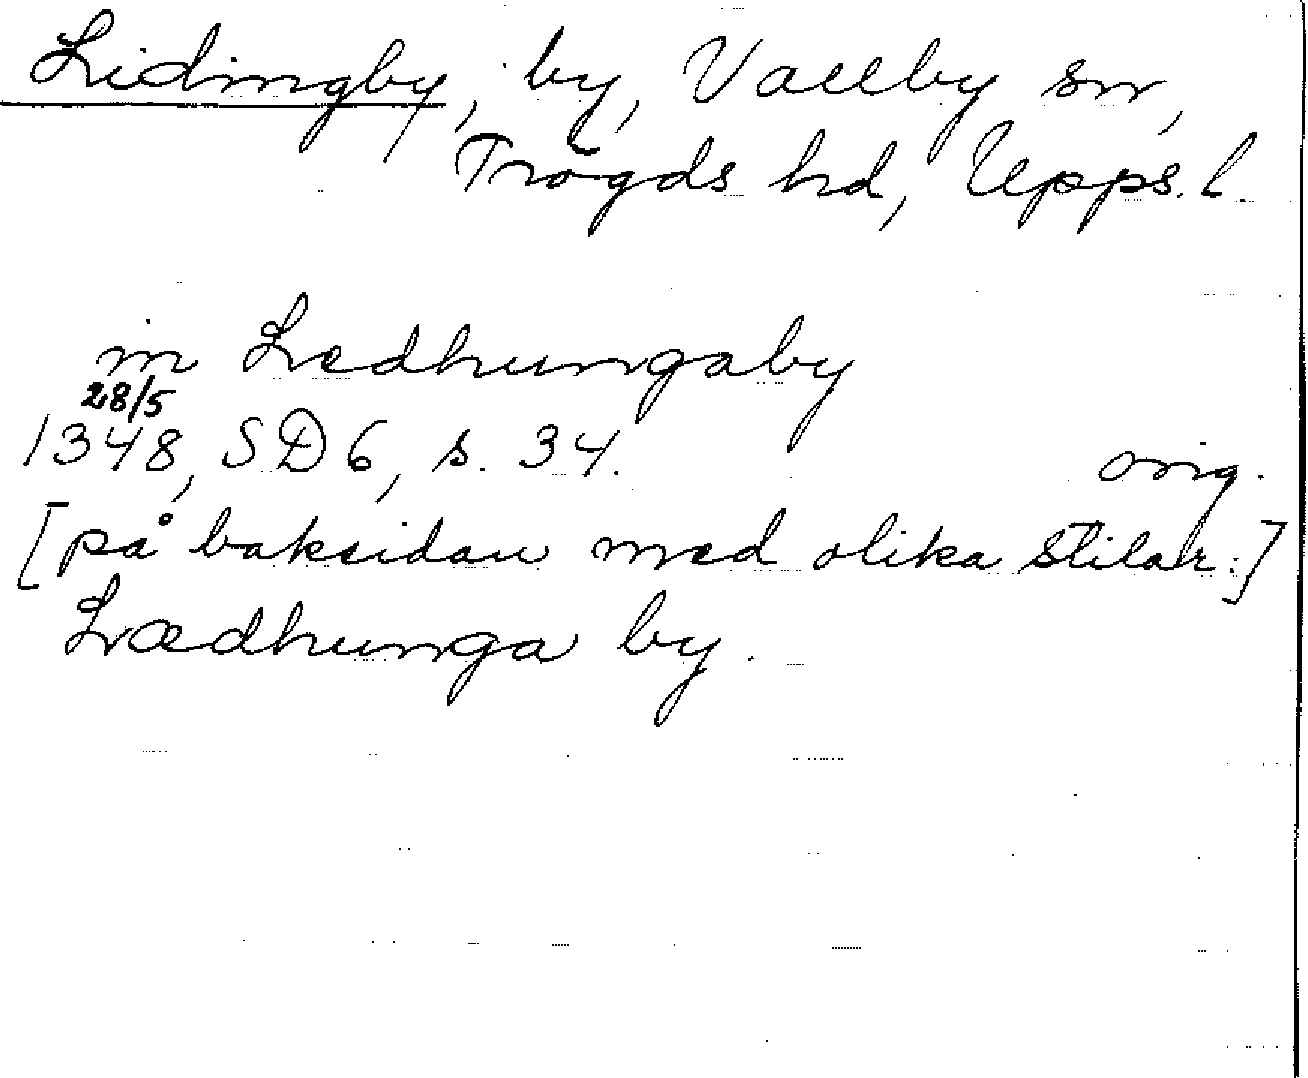 Lidingby, by, Vallby sn,
Trögds hd, Upps. l.
in Ledhungaby
28/5
1348, SD 6, s. 34. orig.
[på baksidan med olika stilar:]
Lædhunga by.